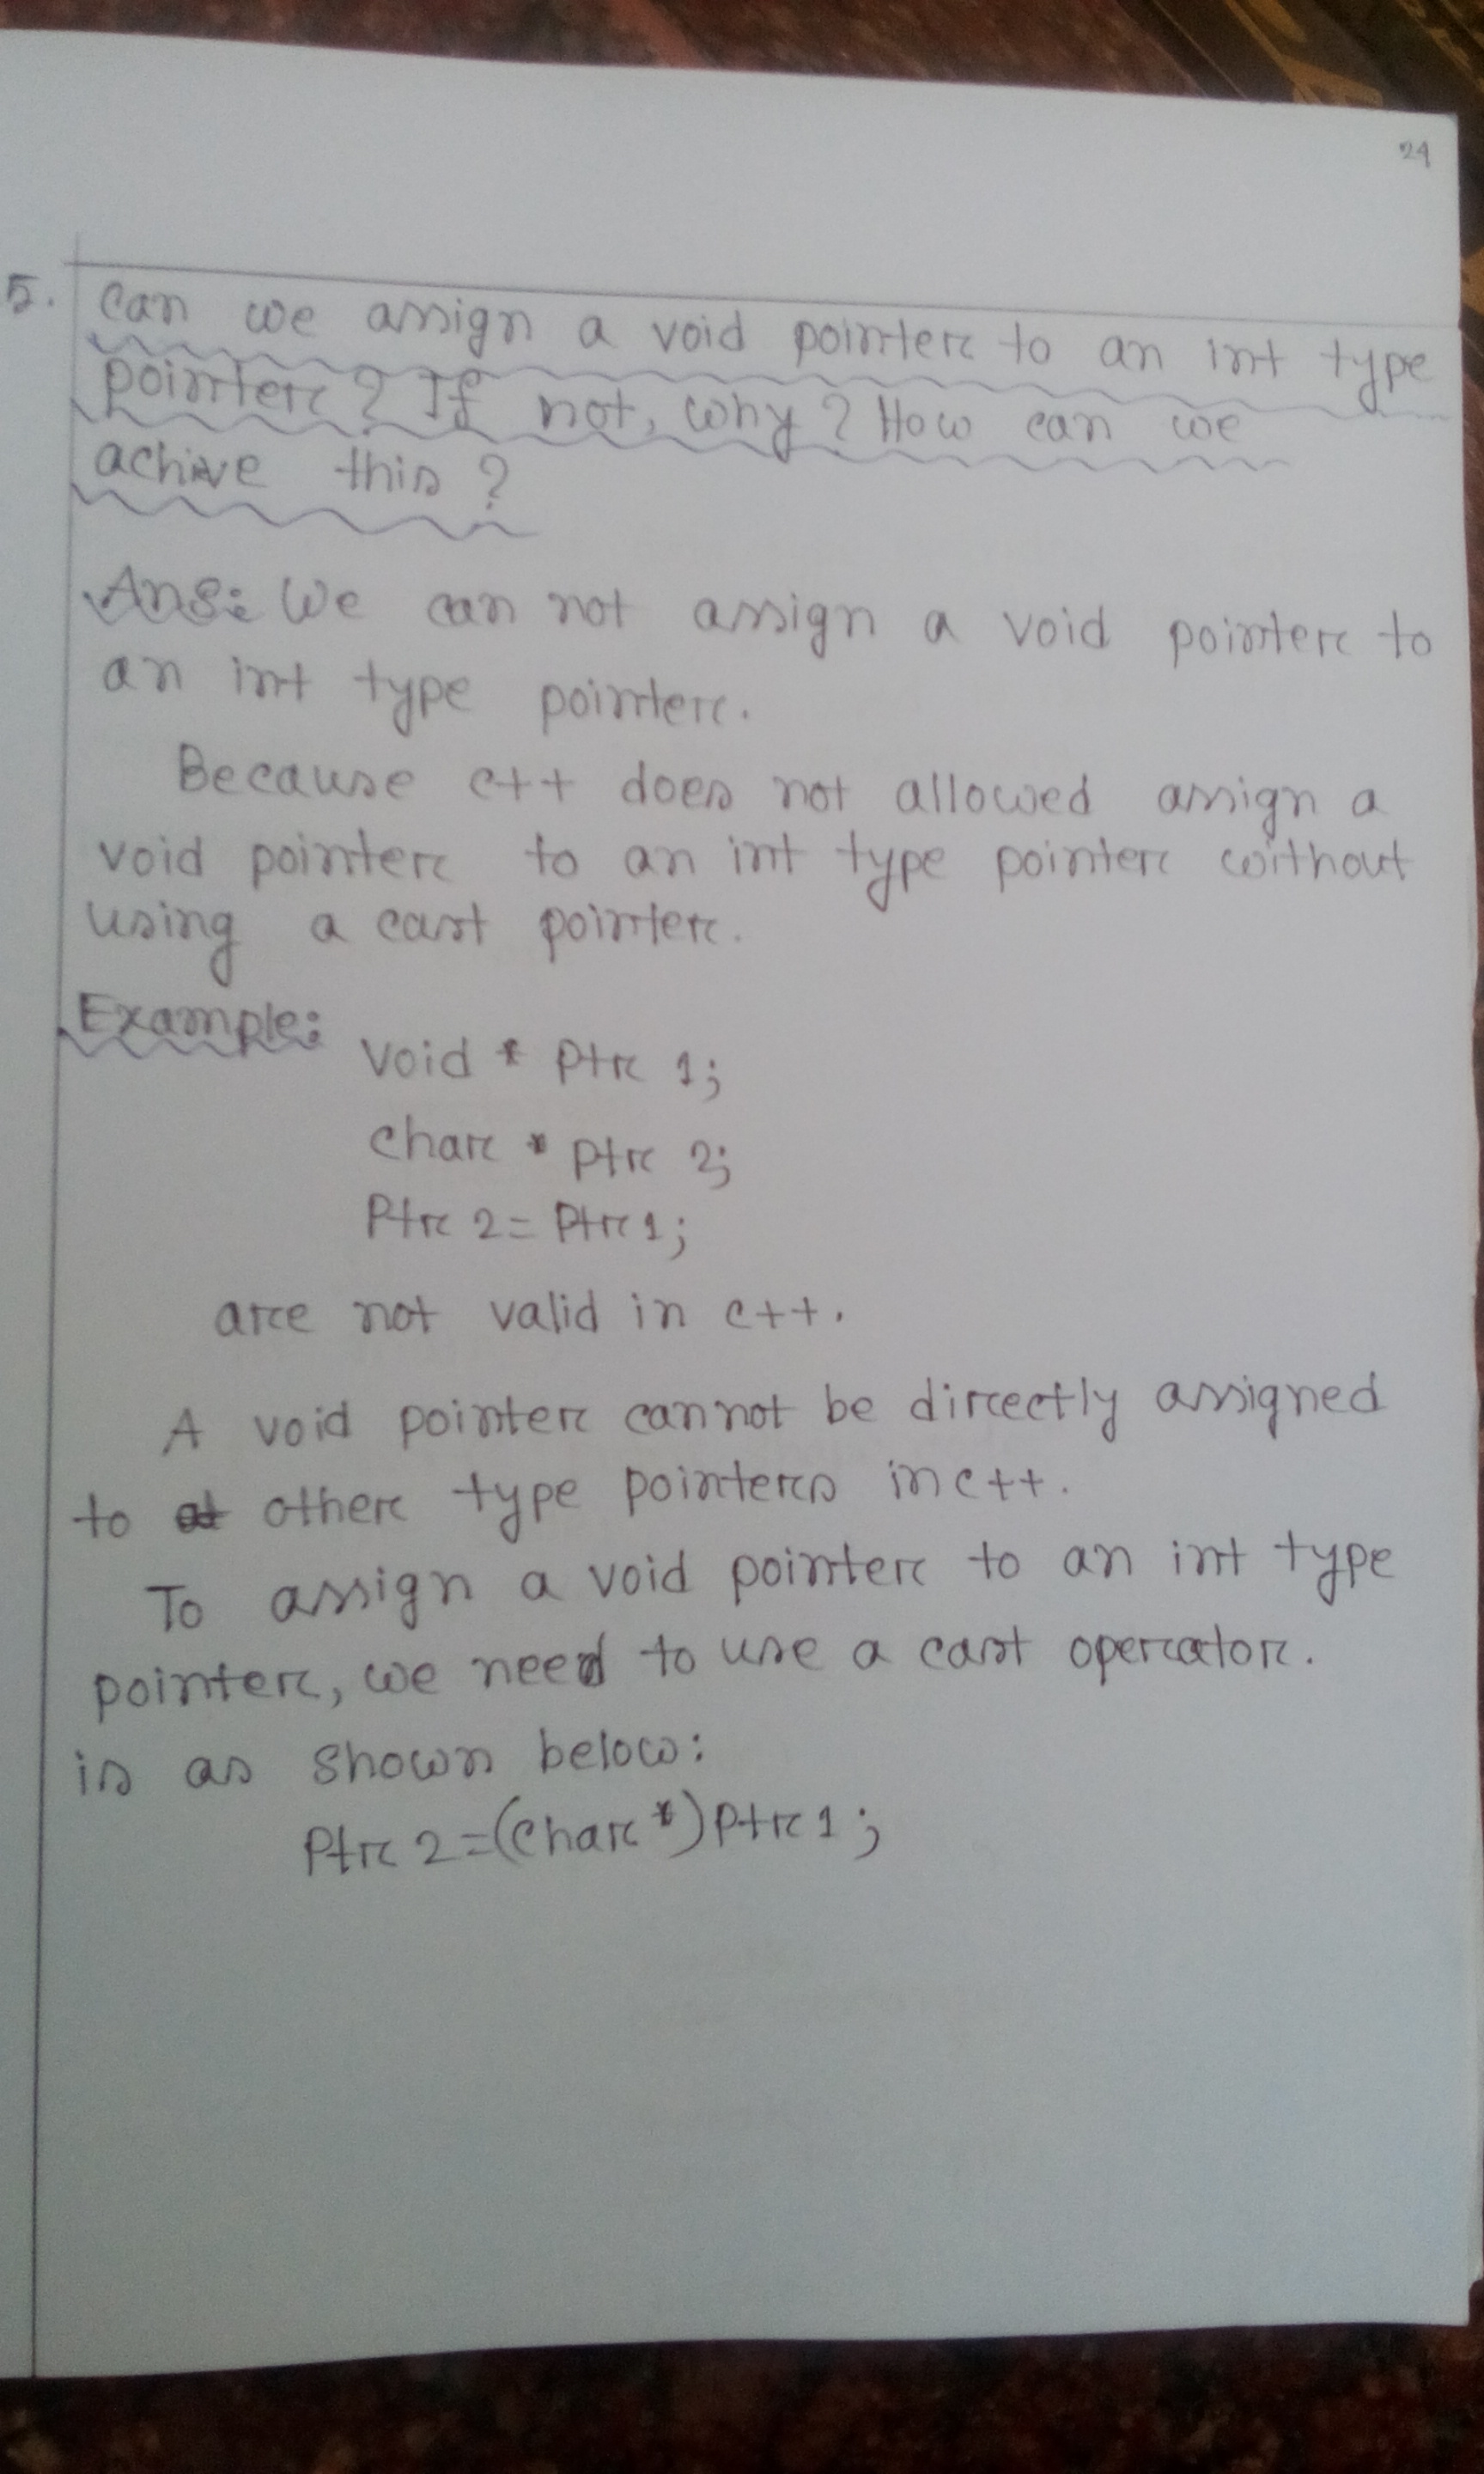 24
5. Can we assign a void pointer to an int type
pointer? If not, why? How can we
achive this?
Ans: We can not assign a void pointer to
an int type pointer.
Because c++ does not allowed assign a
void pointer to an int type pointer without
using a cast pointer.
Example:
void * ptr 1;
char * ptr 2;
Ptr 2 = Ptr 1;
are not valid in c++.
A void pointer cannot be directly assigned
to other type pointers in c++.
To assign a void pointer to an int type
pointer, we need to use a cast operator.
is as shown below:
Ptr 2 = (char *) Ptr 1;